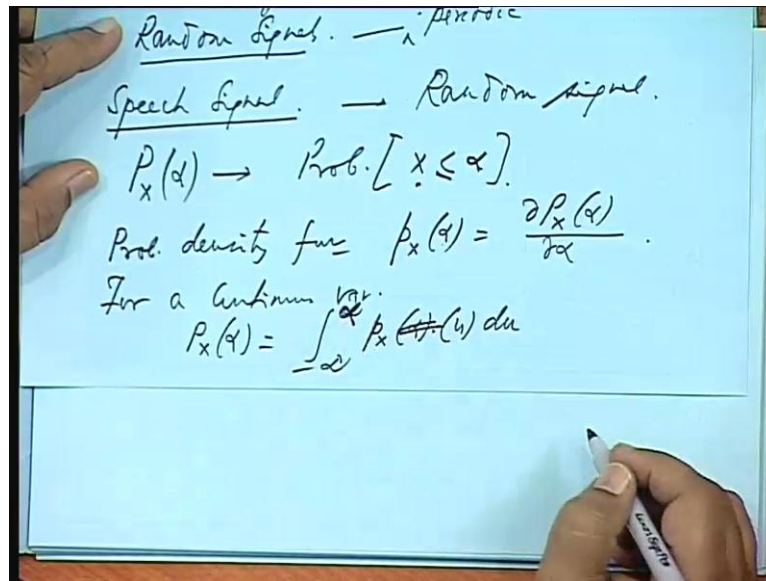 Random Signal. — periodic
Speech Signal. — Random signal.
P_x(α) → Prob. [x ≤ α].
Prob. density fun p_x(α) = ∂P_x(α)/∂α.
For a continuous var.
P_x(α) = ∫_{-∞}^{α} p_x(u) du